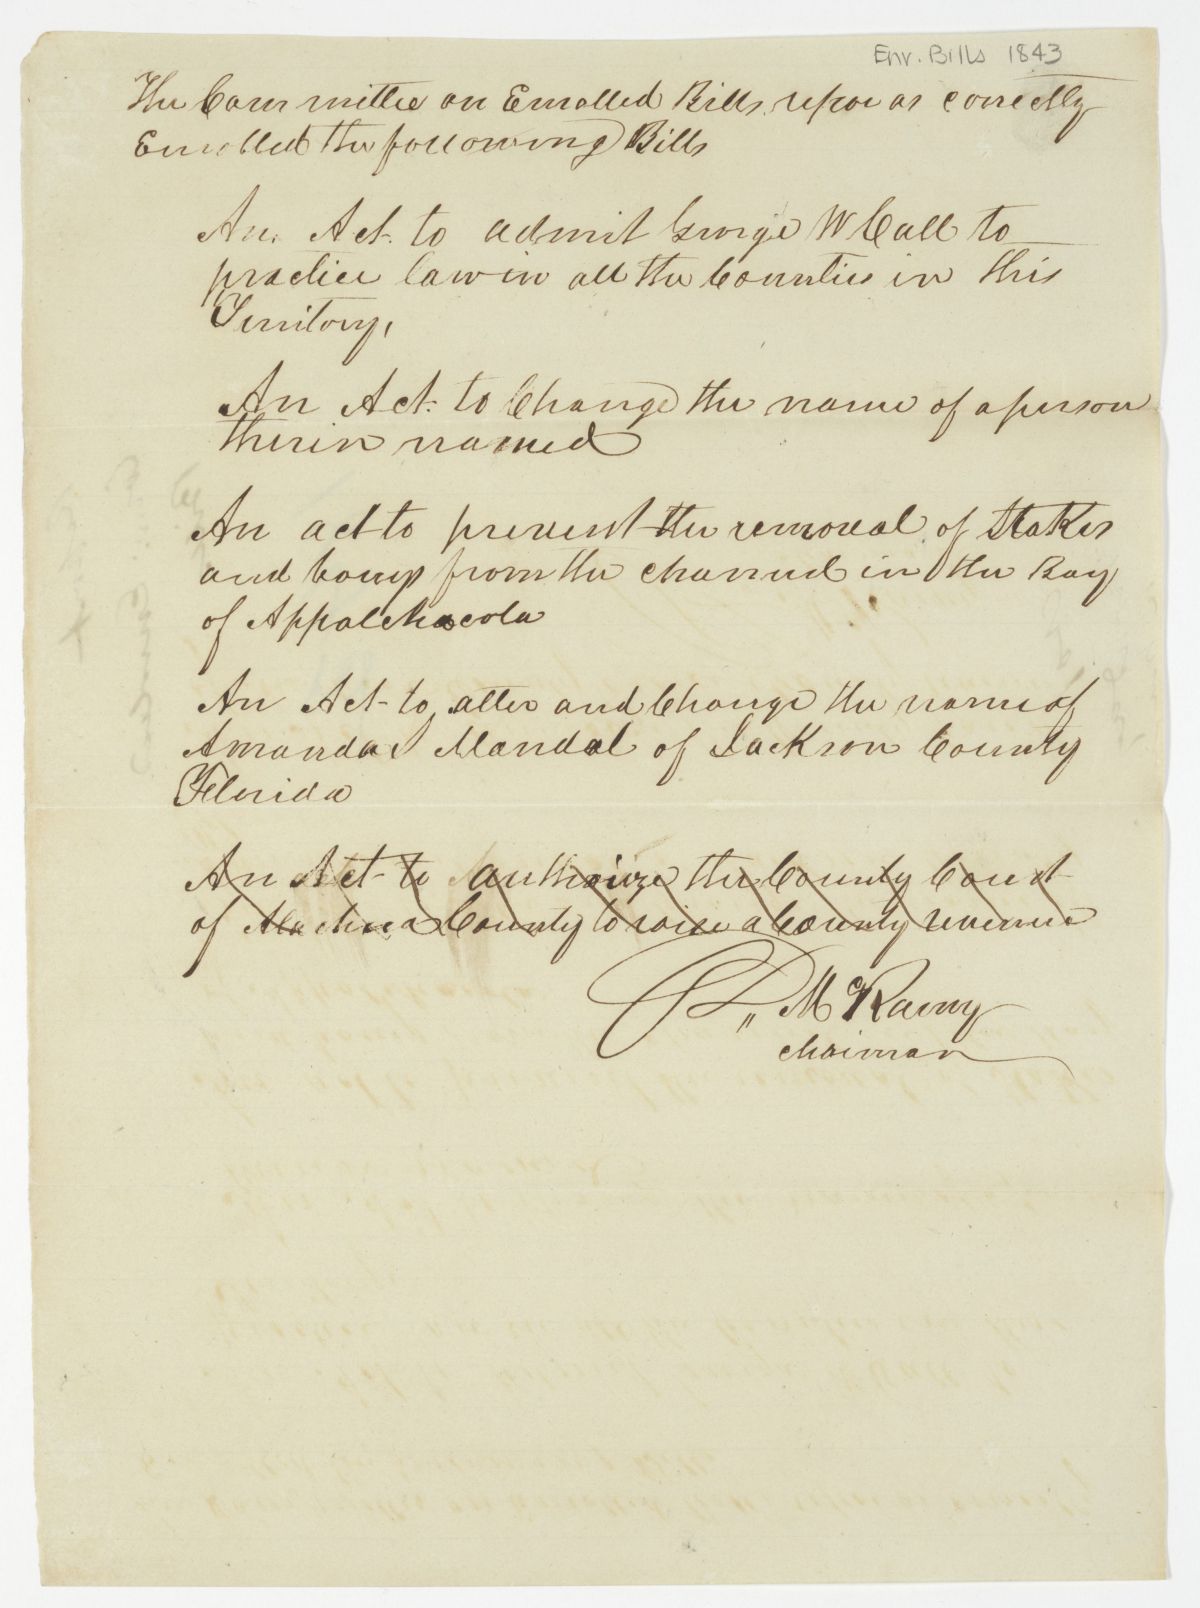 Enr. Bills 1843
The Committee on Enrolled Bills report as correctly
Enrolled the following Bills
An Act to admit George W Call to
practice law in all the Counties in this
Territory,
An Act to Change the name of a person
therein named
An act to prevent the removal of Stakes
and from the channel in the Bay
of Appalchacola
An Act to alter and Change the name of
Amanda S Mandal of Jackson County
Florida
An Act to authorize the County Court
of Alachua County to raise a County revenue
McRaeny
chairman